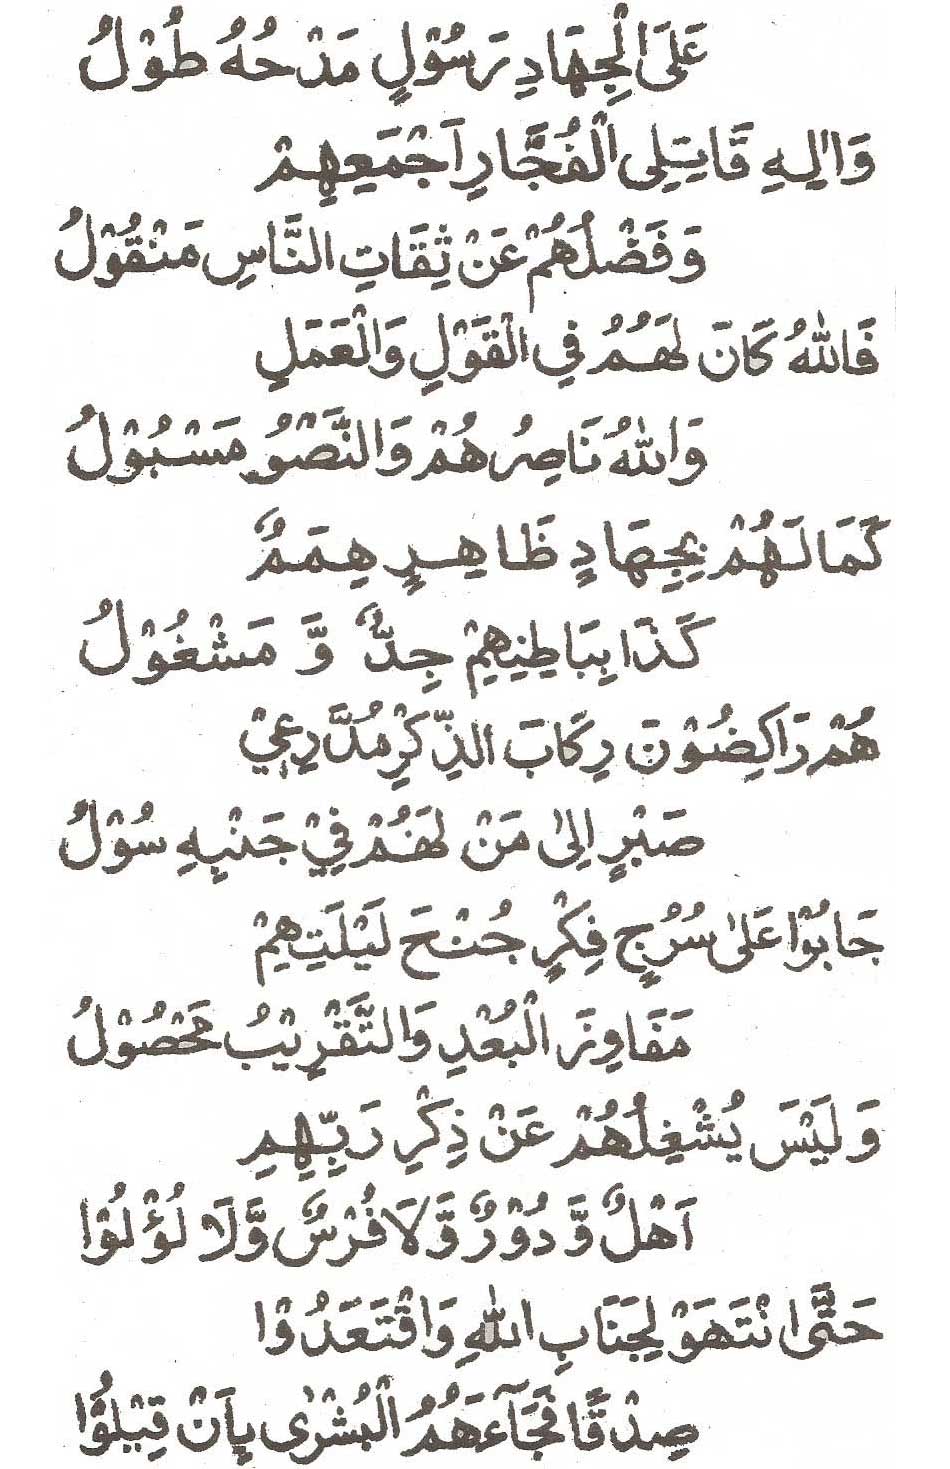 عَلَى الْجِهَادِ رَسُوْلٍ مَدْحُهُ طُوْلُ
وَاٰلِهِ قَاتِلِى الْفُجَّارِ اَجْمَعِهِمْ
وَفَضْلُهُمْ عَنْ ثِقَاتِ النَّاسِ مَنْقُوْلُ
فَاللّٰهُ كَانَ لَهُمُ فِي الْقَوْلِ وَالْعَمَلِ
وَاللّٰهُ نَاصِرُهُمْ وَالنَّصْرُ مَسْبُوْلُ
كَمَا لَهُمْ بِجِهَادٍ ظَاهِرٍ هِمَمٌ
كَذَا بِبَاطِنِهِمْ جِدٌّ وَّ مَشْغُوْلُ
هُمْ رَاكِضُوْنَ رِكَابَ الذِّكْرِ مُدَّرِعِيْ
صَبْرٍ اِلٰى مَنْ لَهُمْ فِيْ جَنْبِهِ سُوْلُ
جَابُوْا عَلٰى سُرُجٍ فِكْرٍ جُنْحَ لَيْلَتِهِمْ
مَفَاوِزَ الْبُعْدِ وَالتَّقْرِيْبُ مَحْصُوْلُ
وَلَيْسَ يُشْغِلُهُمْ عَنْ ذِكْرِ رَبِّهِمِ
اَهْلٌ وَّ دُوْرٌ وَّلَا فُرْسٌ وَّلَا لُؤْلُوْا
حَتَّى انْتَهَوْ لِجَنَابِ اللّٰهِ وَاقْتَعَدُوْا
صِدْقًا فَجَآءَهُمُ الْبُشْرٰى بِاَنْ قِبْلُوْا